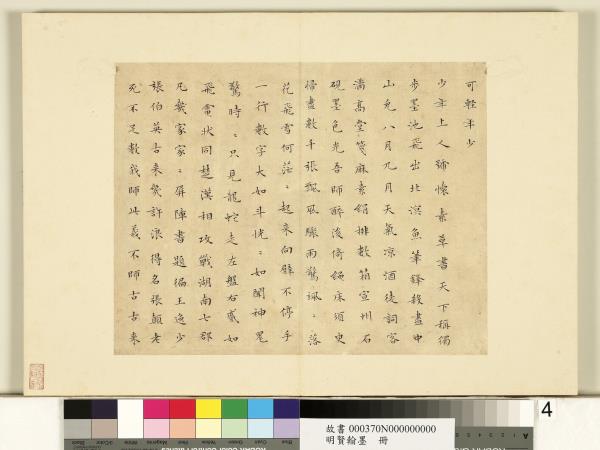 可輕年少
少年上人號懷素草書天下稱獨
步墨池飛出北溟魚筆鋒殺盡中
山兔八月九月天氣凉酒徒詞客
滿高堂箋麻素絹排數箱宣州石
硯墨色光吾師醉後倚繩床須臾
掃盡數千張飄風驟雨驚颯〻落
花飛雪何茫〻起來向壁不停手
一行數字大如斗恍〻如聞神鬼
驚時〻只見龍蛇走左盤右蹙如
飛電狀同楚漢相攻戰湖南七郡
凡幾家家〻屏陣書題徧王逸少
張伯英古來幾許浪得名張顛老
死不足數我師此義不師古古來
4
故書 000370N000000000
明賢翰墨 冊